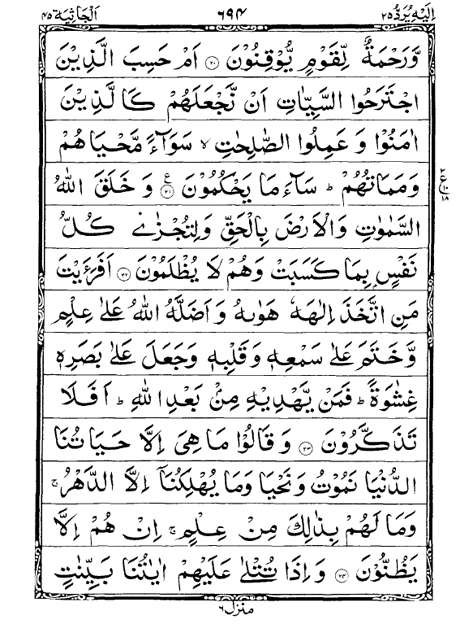 اِلَیْهِ یُرَدُّ ۲۵ ۶۹۴ اَلْجَاثِیَة ۴۵
وَّرَحْمَةٌ لِّقَوْمٍ یُّوْقِنُوْنَ ۝۲۰ اَمْ حَسِبَ الَّذِیْنَ
اجْتَرَحُوا السَّیِّاٰتِ اَنْ نَّجْعَلَهُمْ كَالَّذِیْنَ
اٰمَنُوْا وَ عَمِلُوا الصّٰلِحٰتِ ۙ سَوَآءً مَّحْیَاهُمْ
وَمَمَاتُهُمْ ؕ سَآءَ مَا یَحْكُمُوْنَ ۝۲۱ ع وَ خَلَقَ اللّٰهُ
السَّمٰوٰتِ وَالْاَرْضَ بِالْحَقِّ وَلِتُجْزٰی كُلُّ
نَفْسٍۭ بِمَا كَسَبَتْ وَهُمْ لَا یُظْلَمُوْنَ ۝۲۲ اَفَرَءَیْتَ
مَنِ اتَّخَذَ اِلٰهَهٗ هَوٰىهُ وَ اَضَلَّهُ اللّٰهُ عَلٰی عِلْمٍ
وَّخَتَمَ عَلٰی سَمْعِهٖ وَ قَلْبِهٖ وَجَعَلَ عَلٰی بَصَرِهٖ
غِشٰوَةً ؕ فَمَنْ یَّهْدِیْهِ مِنْۢ بَعْدِ اللّٰهِ ؕ اَفَلَا
تَذَكَّرُوْنَ ۝۲۳ وَ قَالُوْا مَا هِیَ اِلَّا حَیَاتُنَا
الدُّنْیَا نَمُوْتُ وَنَحْیَا وَمَا یُهْلِكُنَاۤ اِلَّا الدَّهْرُ ۚ
وَمَا لَهُمْ بِذٰلِكَ مِنْ عِلْمٍ ۚ اِنْ هُمْ اِلَّا
یَظُنُّوْنَ ۝۲۴ وَ اِذَا تُتْلٰی عَلَیْهِمْ اٰیٰتُنَا بَیِّنٰتٍ
منزل ۶